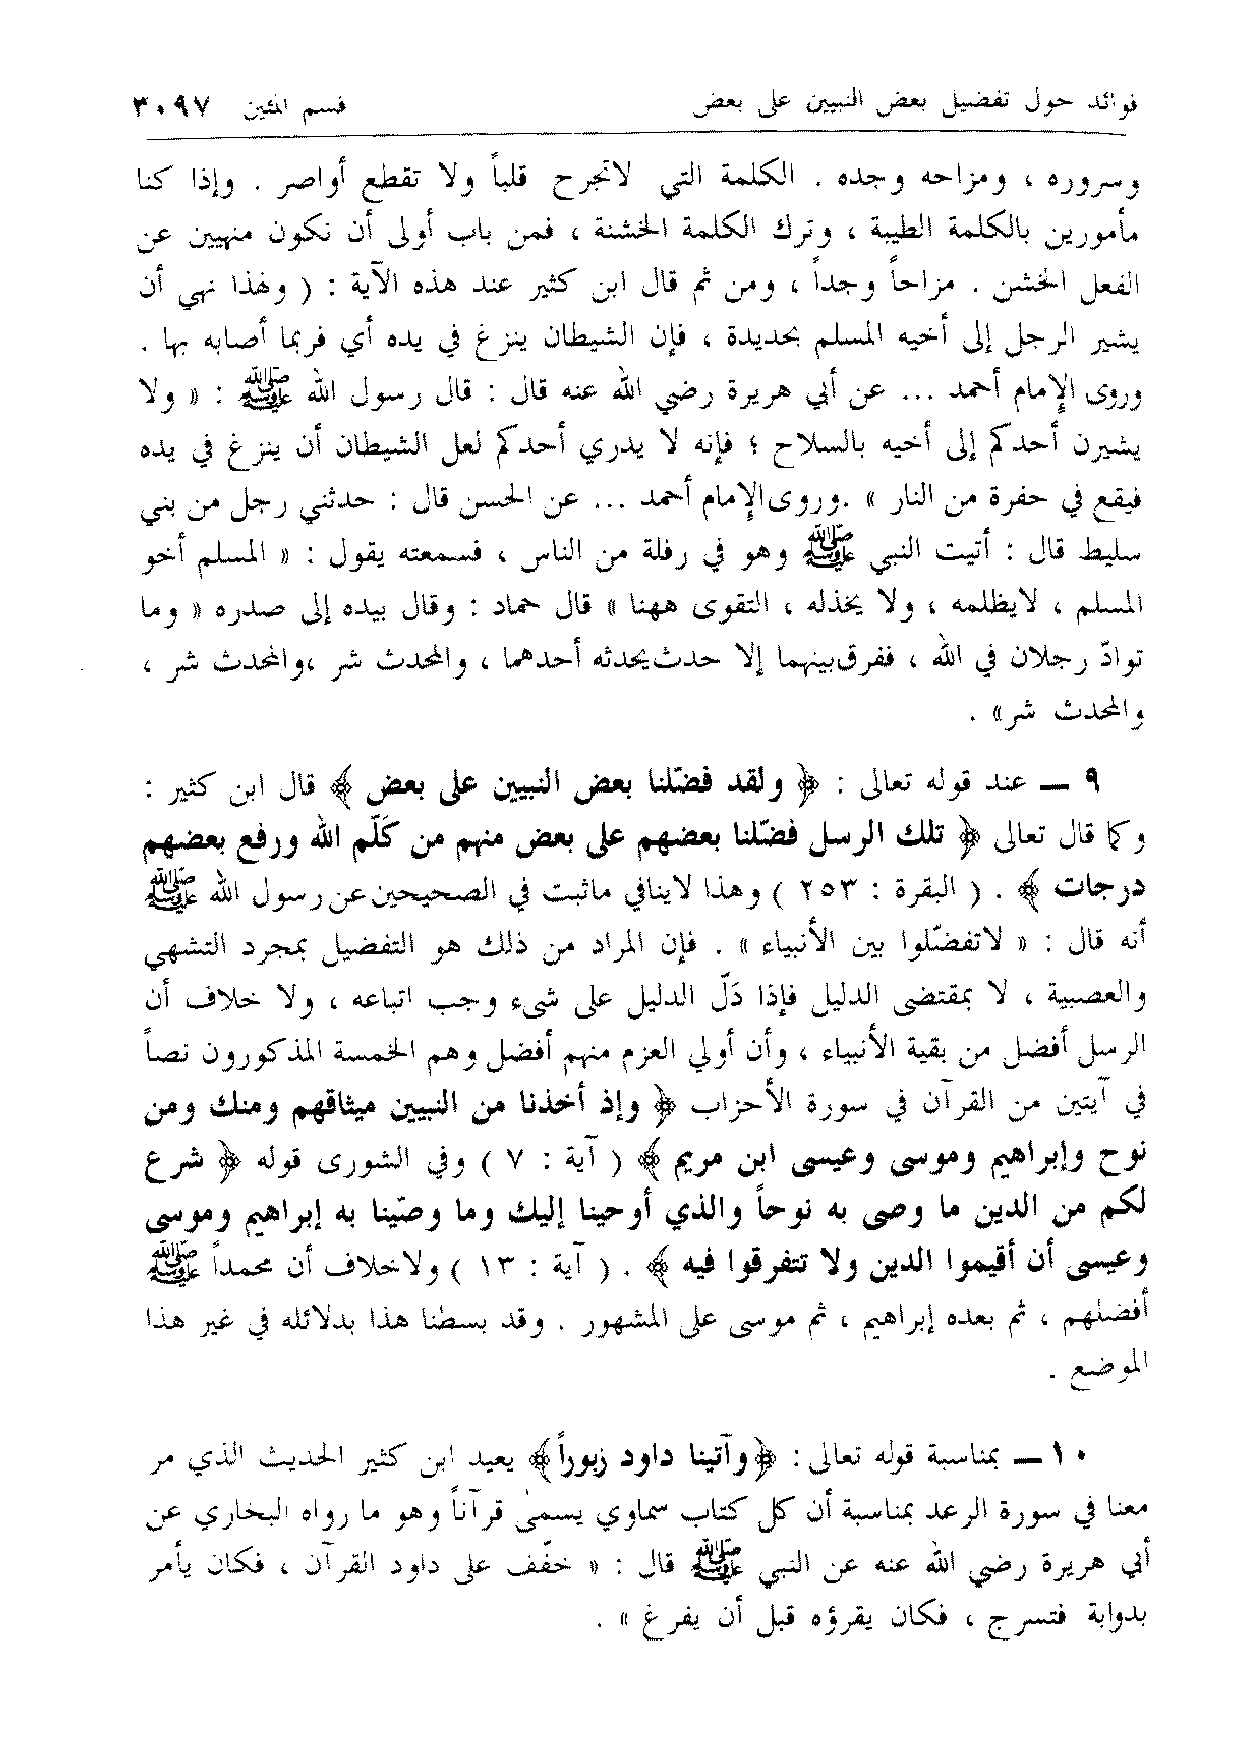 فوائد حول تفضيل بعض النبيين على بعض قسم المئين ٣٠٩٧
وسروره ، ومزاحه وجده . الكلمة التي لاتجرح قلباً ولا تقطع أواصر . وإذا كنا
مأمورين بالكلمة الطيبة ، وترك الكلمة الخشنة ، فمن باب أولى أن نكون منهيين عن
الفعل الخشن . مزاحاً وجداً ، ومن ثم قال ابن كثير عند هذه الآية : ( ولهذا نهى أن
يشير الرجل إلى أخيه المسلم بحديدة ، فإن الشيطان ينزغ في يده أي فربما أصابه بها .
وروى الإمام أحمد ... عن أبي هريرة رضي الله عنه قال : قال رسول الله ﷺ : « ولا
يشيرن أحدكم إلى أخيه بالسلاح ؛ فإنه لا يدري أحدكم لعل الشيطان أن ينزغ في يده
فيقع في حفرة من النار » .وروى الإمام أحمد ... عن الحسن قال : حدثني رجل من بني
سليط قال : أتيت النبي ﷺ وهو في رفلة من الناس ، فسمعته يقول : « المسلم أخو
المسلم ، لايظلمه ، ولا يخذله ، التقوى ههنا » قال حماد : وقال بيده إلى صدره « وما
توادّ رجلان في الله ، ففرق بينهما إلا حدث يحدثه أحدهما ، والمحدث شر ،والمحدث شر ،
والمحدث شر» .
٩ — عند قوله تعالى : ﴿ ولقد فضّلنا بعض النبيين على بعض ﴾ قال ابن كثير :
وكما قال تعالى ﴿ تلك الرسل فضّلنا بعضهم على بعض منهم من كَلّم الله ورفع بعضهم
درجات ﴾ . ( البقرة : ٢٥٣ ) وهذا لاينافي ماثبت في الصحيحين عن رسول الله ﷺ
أنه قال : « لاتفضّلوا بين الأنبياء » . فإن المراد من ذلك هو التفضيل بمجرد التشهي
والعصبية ، لا بمقتضى الدليل فإذا دَلّ الدليل على شىء وجب اتباعه ، ولا خلاف أن
الرسل أفضل من بقية الأنبياء ، وأن أولي العزم منهم أفضل وهم الخمسة المذكورون نصاً
في آيتين من القرآن في سورة الأحزاب ﴿ وإذ أخذنا من النبيين ميثاقهم ومنك ومن
نوح وإبراهيم وموسى وعيسى ابن مريم ﴾ ( آية : ٧ ) وفي الشورى قوله ﴿ شرع
لكم من الدين ما وصى به نوحاً والذي أوحينا إليك وما وصّينا به إبراهيم وموسى
وعيسى أن أقيموا الدين ولا تتفرقوا فيه ﴾ . ( آية : ١٣ ) ولاخلاف أن محمداً ﷺ
أفضلهم ، ثم بعده إبراهيم ، ثم موسى على المشهور . وقد بسطنا هذا بدلائله في غير هذا
الموضع .
١٠ — بمناسبة قوله تعالى : ﴿وآتينا داود زبوراً﴾ يعيد ابن كثير الحديث الذي مر
معنا في سورة الرعد بمناسبة أن كل كتاب سماوي يسمى قرآناً وهو ما رواه البخاري عن
أبي هريرة رضي الله عنه عن النبي ﷺ قال : « خفّف على داود القرآن ، فكان يأمر
بدوابة فتسرج ، فكان يقرؤه قبل أن يفرغ » .